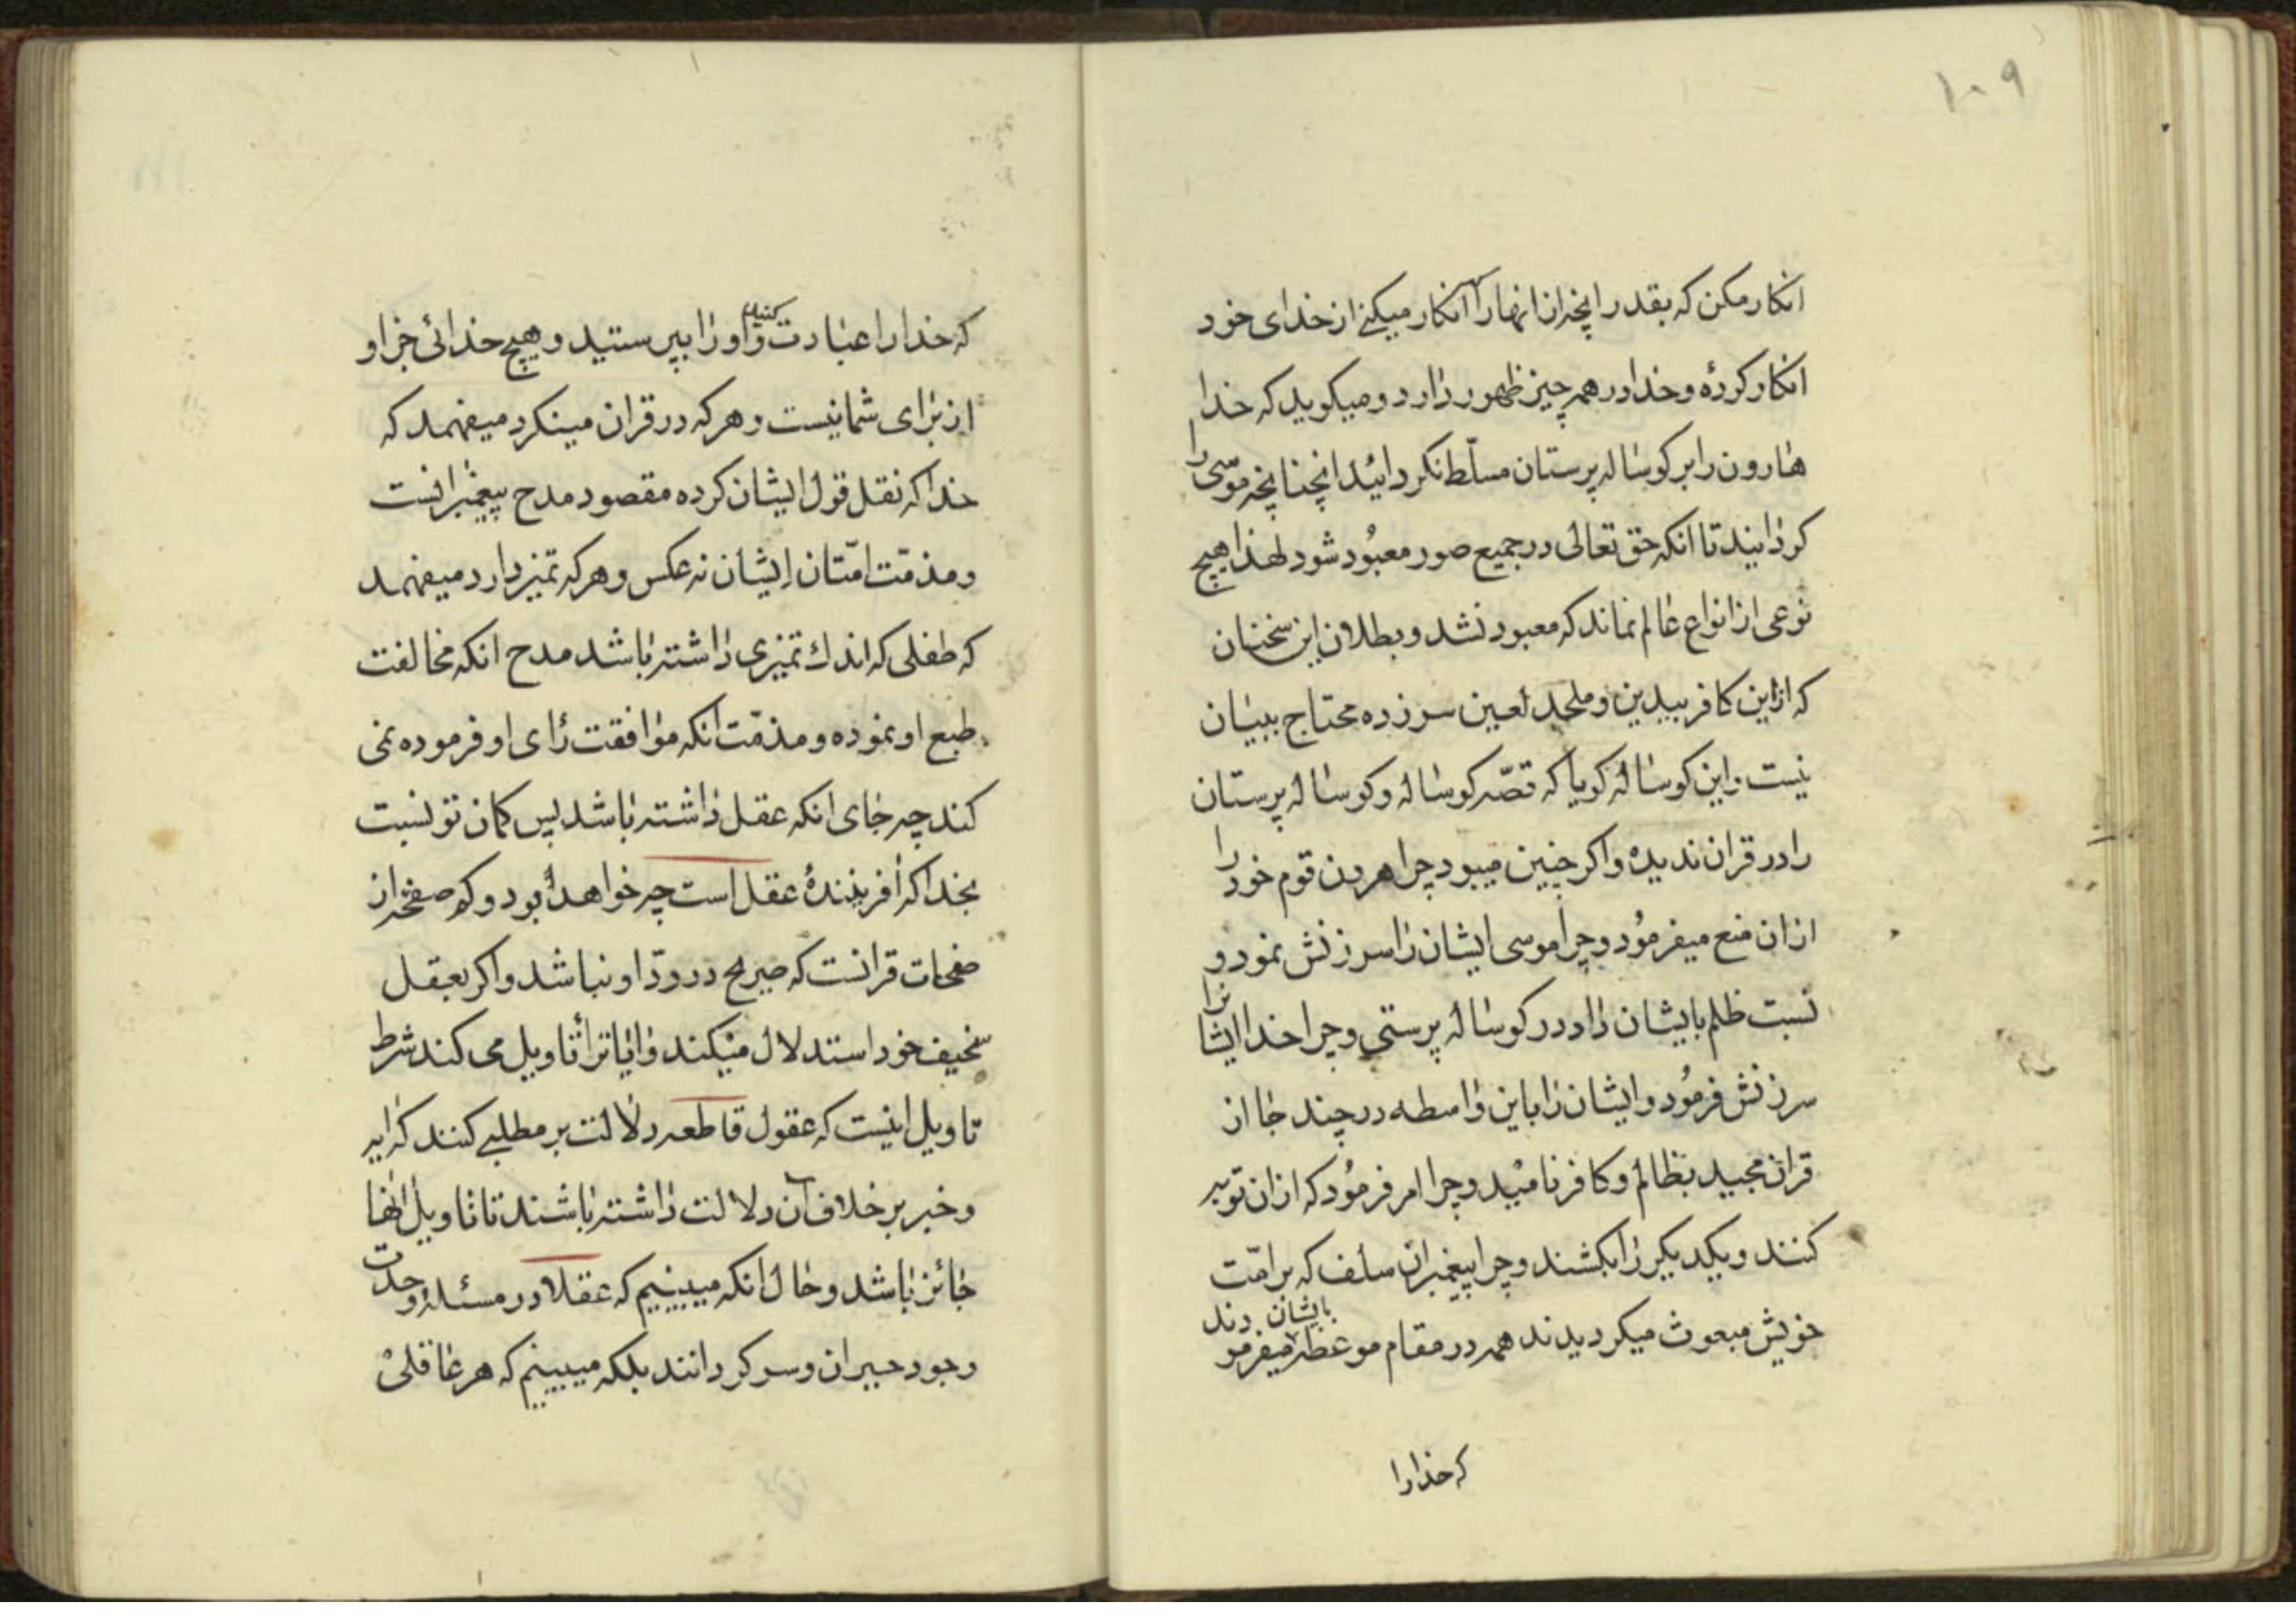 ۱۰۹
انکار مکن که بقدر انچه از انها را انکار میکنی از خدای خود
انکار کردهٔ و خدا در همه چیز ظهور دارد و میکوید که خدا
هارون را بر کوساله پرستان مسلّط نکردانید انچنانچه موسی را
کردانید تا انکه حق تعالی در جمیع صور معبُود شود لهذا هیچ
نوعی از انواع عالم نماند که معبود نشد و بطلان این سخنان
که از این کافر بیدین و ملحد لعین سر زده محتاج ببیان
نیست و این کوساله کویا که قصّه کوساله و کوساله پرستان
را در قران ندیده و اکر چنین میبود چرا هرون قوم خود را
از ان منع میفرمُود و چرا موسی ایشان را سرزنش نمود و
نسبت ظلم بایشان داد در کوساله پرستی و چرا خدا ایشانرا
سرزنش فرمُود و ایشان را باین واسطه در چند جا از
قران مجید بظالم و کافر نامید و چرا امر فرمُود که از ان توبه
کنند و یکدیکر را بکشند و چرا پیغمبران سلف که بر امّت
خویش مبعوث میکردیدند همه در مقام موعظه بایشان میفرمودند
که خدا را
که خدا را عبادت کنید و او را بپرستید و هیچ خدائی جز او
از برای شما نیست و هر که در قران مینکرد میفهمد که
خدا که نقل قول ایشان کرده مقصود مدح پیغمبرانست
و مذمّت امّتان ایشان نه عکس و هر که تمیز دارد میفهمد
که طفلی که اندك تمیزی داشته باشد مدح انکه مخالفت
طبع او نموده و مذمّت انکه موافقت رای او فرموده نمی
کند چه جای انکه عقل داشته باشد پس کمان تو نسبت
بخدا که افرینندهٔ عقل است چه خواهد بود و کو صفحه از
صفحات قرانست که صریح در ردّ او نباشد و اکر بعقل
سخیف خود استدلال میکند و ایاترا تاویل می کند شرط
تاویل اینست که عقول قاطعه دلالت بر مطلبی کنند که ایه
و خبر بر خلاف آن دلالت داشته باشند تا تاویل انها
جائز باشد و حال انکه میبینیم که عقلا در مسئله وحدت
وجود حیران و سرکردانند بلکه میبینیم که هر عاقلی